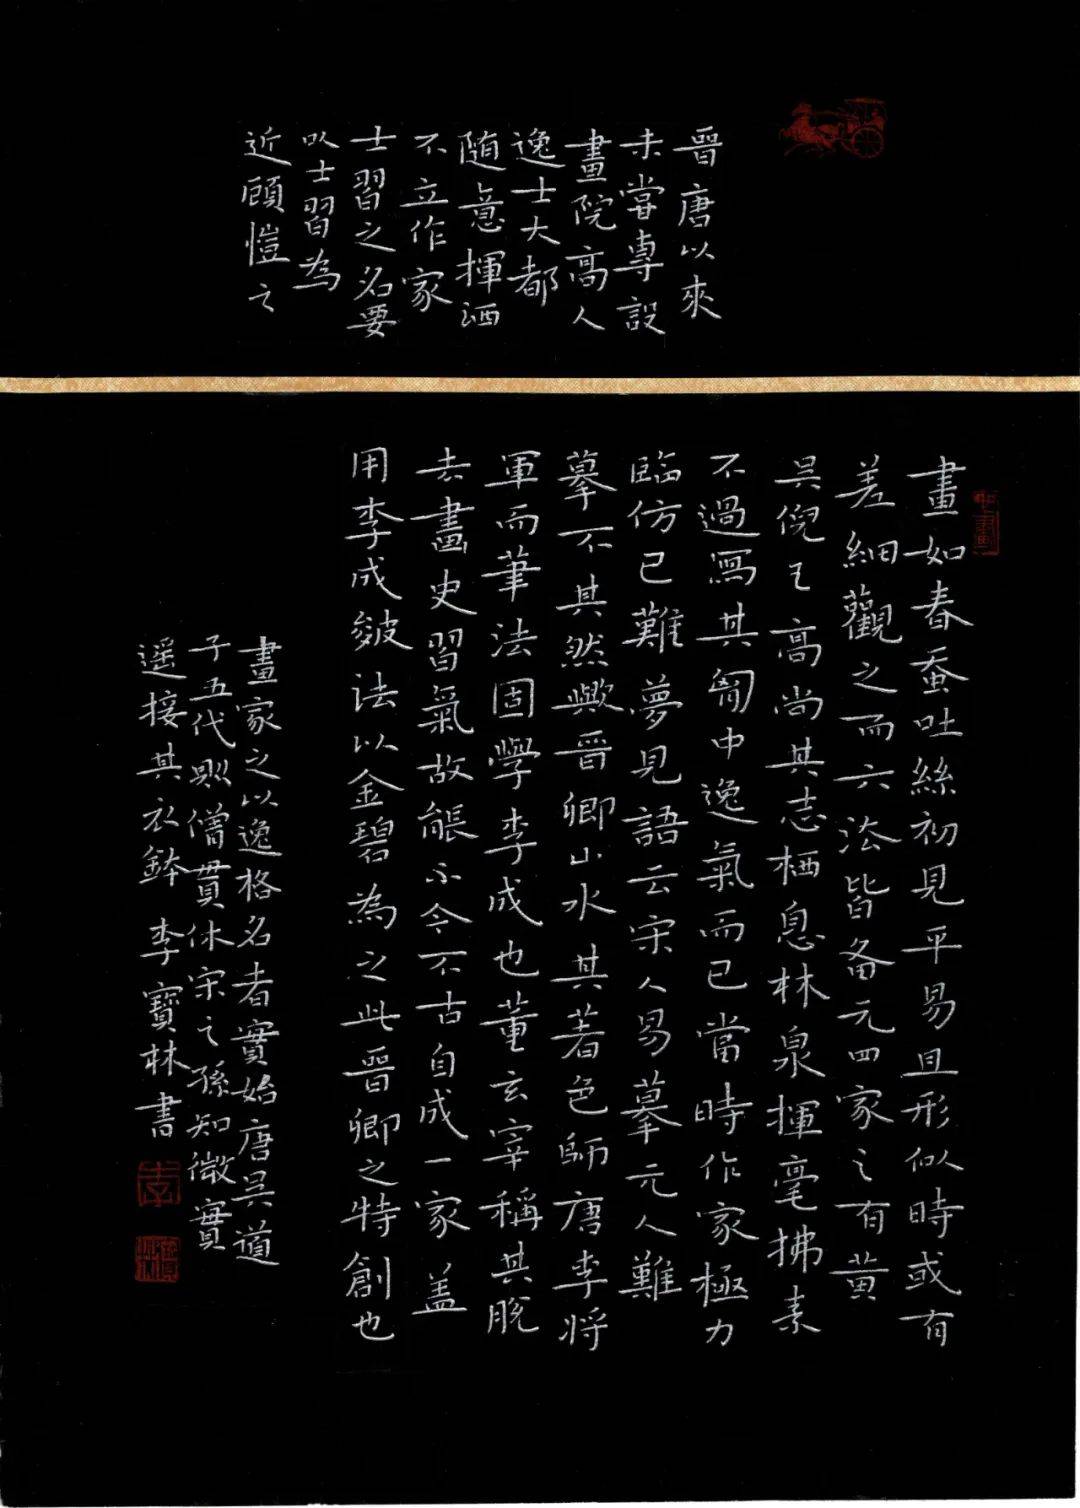 晋唐以來
未嘗專設
畫院高人
逸士大都
随意揮洒
不立作家
士習之名要
以士習為
近顧愷之
畫如春蚕吐絲初見平易且形似時或有
差細觀之而六法皆备元四家之有黄
吴倪王高尚其志栖息林泉揮毫拂素
不過寫其匈中逸氣而已當時作家極力
臨仿已難夢見語云宋人易摹元人難
摹不其然歟晋卿山水其着色師唐李将
軍而筆法固學李成也董玄宰稱其脱
去畫史習氣故能不今不古自成一家盖
用李成皴法以金碧為之此晋卿之特創也
畫家之以逸格名者實始唐吴道
子五代則僧貫休宋之孫知微實
遥接其衣鉢 李寶林書
李